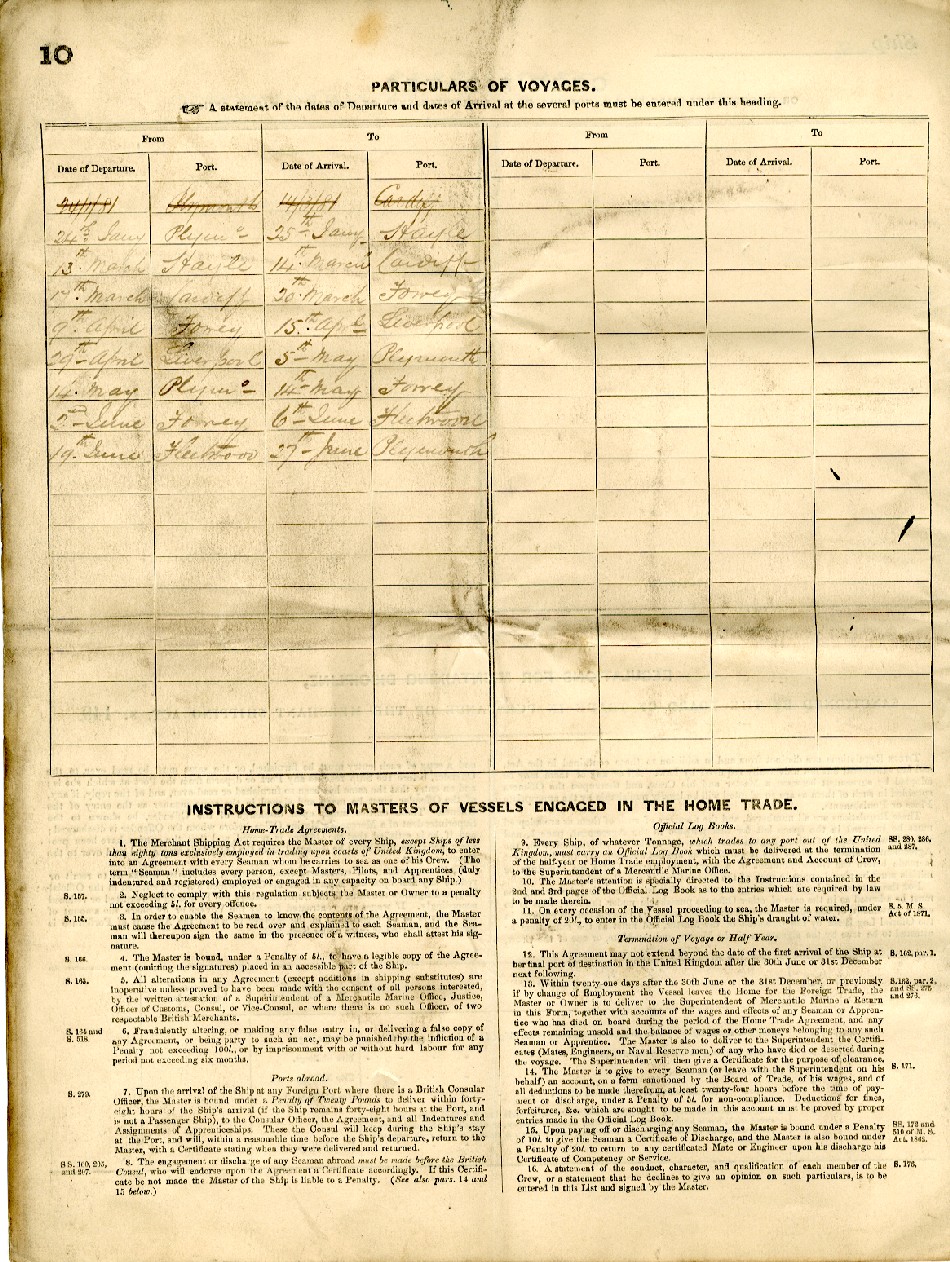 10
PARTICULARS OF VOYAGES.
☞ A statement of the dates of Departure and dates of Arrival at the several ports must be entered under this heading.
From To From To
Date of Departure. Port. Date of Arrival. Port. Date of Departure. Port. Date of Arrival. Port.
Plymouth Cardiff
24th Jany Plymo 25th Jany Hayle
13th March Hayle 14th March Cardiff
17th March Cardiff 20 March Fowey
9th April Fowey 15th Apl Liverpool
29th April Liverpool 5th May Plymouth
14 May Plymo 14th May Fowey
2nd June Fowey 6th June Fleetwood
19th June Fleetwood 27th June Plymouth
INSTRUCTIONS TO MASTERS OF VESSELS ENGAGED IN THE HOME TRADE.
Home-Trade Agreements.
1. The Merchant Shipping Act requires the Master of every Ship, except Ships of less
than eighty tons exclusively employed in trading upon coasts of United Kingdom, to enter
into an Agreement with every Seaman whom he carries to sea as one of his Crew. (The
term "Seaman" includes every person, except Masters, Pilots, and Apprentices (duly
indentured and registered) employed or engaged in any capacity on board any Ship.)
S. 157. 2. Neglect to comply with this regulation subjects the Master or Owner to a penalty
not exceeding 5l. for every offence.
3. In order to enable the Seamen to know the contents of the Agreement, the Master
must cause the Agreement to be read over and explained to each Seaman, and the Sea-
man will thereupon sign the same in the presence of a witness, who shall attest his sig-
nature.
S. 166. 4. The Master is bound, under a Penalty of 5l., to have a legible copy of the Agree-
ment (omitting the signatures) placed in an accessible part of the Ship.
S. 163. 5. All alterations in any Agreement (except additions in shipping substitutes) are
inoperative unless proved to have been made with the consent of all persons interested,
by the written attestation of a Superintendent of a Mercantile Marine Office, Justice,
Officer of Customs, Consul, or Vice-Consul, or where there is no such Officer, of two
respectable British Merchants.
S. 164 and S. 518. 6. Fraudulently altering, or making any false entry in, or delivering a false copy of
any Agreement, or being party to such an act, may be punished by the infliction of a
Penalty not exceeding 100l., or by imprisonment with or without hard labour for any
period not exceeding six months.
Ports abroad.
S. 279. 7. Upon the arrival of the Ship at any Foreign Port where there is a British Consular
Officer, the Master is bound under a Penalty of Twenty Pounds to deliver within forty-
eight hours of the Ship's arrival (if the Ship remains forty-eight hours at the Port, and
is not a Passenger Ship), to the Consular Officer, the Agreement, and all Indentures and
Assignments of Apprenticeships. These the Consul will keep during the Ship's stay
at the Port, and will, within a reasonable time before the Ship's departure, return to the
Master, with a Certificate stating when they were delivered and returned.
SS. 160, 205, and 207. 8. The engagement or discharge of any Seaman abroad must be made before the British
Consul, who will endorse upon the Agreement a Certificate accordingly. If this Certifi-
cate be not made the Master of the Ship is liable to a Penalty. (See also pars. 14 and
15 below.)
Official Log Books.
9. Every Ship, of whatever Tonnage, which trades to any port out of the United
Kingdom, must carry an Official Log Book which must be delivered at the termination
of the half-year or Home Trade employment, with the Agreement and Account of Crew,
to the Superintendent of a Mercantile Marine Office.
10. The Master's attention is specially directed to the Instructions contained in the
2nd and 3rd pages of the Official Log Book as to the entries which are required by law
to be made therein.
11. On every occasion of the Vessel proceeding to sea, the Master is required, under
a penalty of 20l., to enter in the Official Log Book the Ship's draught of water. S. 5, M. S. Act of 1871.
Termination of Voyage or Half Year.
12. This Agreement may not extend beyond the date of the first arrival of the Ship at
her final port of destination in the United Kingdom after the 30th June or 31st December
next following. S. 162, par. 1.
13. Within twenty-one days after the 30th June or the 31st December, or previously
if by change of Employment the Vessel leave the Home for the Foreign Trade, the
Master or Owner is to deliver to the Superintendent of Mercantile Marine a Return
in this Form, together with accounts of the wages and effects of any Seaman or Appren-
tice who has died on board during the period of the Home Trade Agreement, and any
effects remaining unsold and the balance of wages or other moneys belonging to any such
Seaman or Apprentice. The Master is also to deliver to the Superintendent the Certifi-
cates (Mates, Engineers, or Naval Reserve men) of any who have died or deserted during
the voyage. The Superintendent will then give a Certificate for the purpose of clearance.
14. The Master is to give to every Seaman (or leave with the Superintendent on his
behalf) an account, on a form sanctioned by the Board of Trade, of his wages, and of
all deductions to be made therefrom, at least twenty-four hours before the time of pay-
ment or discharge, under a Penalty of 5l. for non-compliance. Deductions for fines,
forfeitures, &c. which are sought to be made in this account must be proved by proper
entries made in the Official Log Book. S. 171.
15. Upon paying off or discharging any Seaman, the Master is bound under a Penalty
of 10l. to give the Seaman a Certificate of Discharge, and the Master is also bound under
a Penalty of 20l. to return to any certificated Mate or Engineer upon his discharge his
Certificate of Competency or Service.
16. A statement of the conduct, character, and qualification of each member of the
Crew, or a statement that he declines to give an opinion on such particulars, is to be
entered in this List and signed by the Master. S. 176,